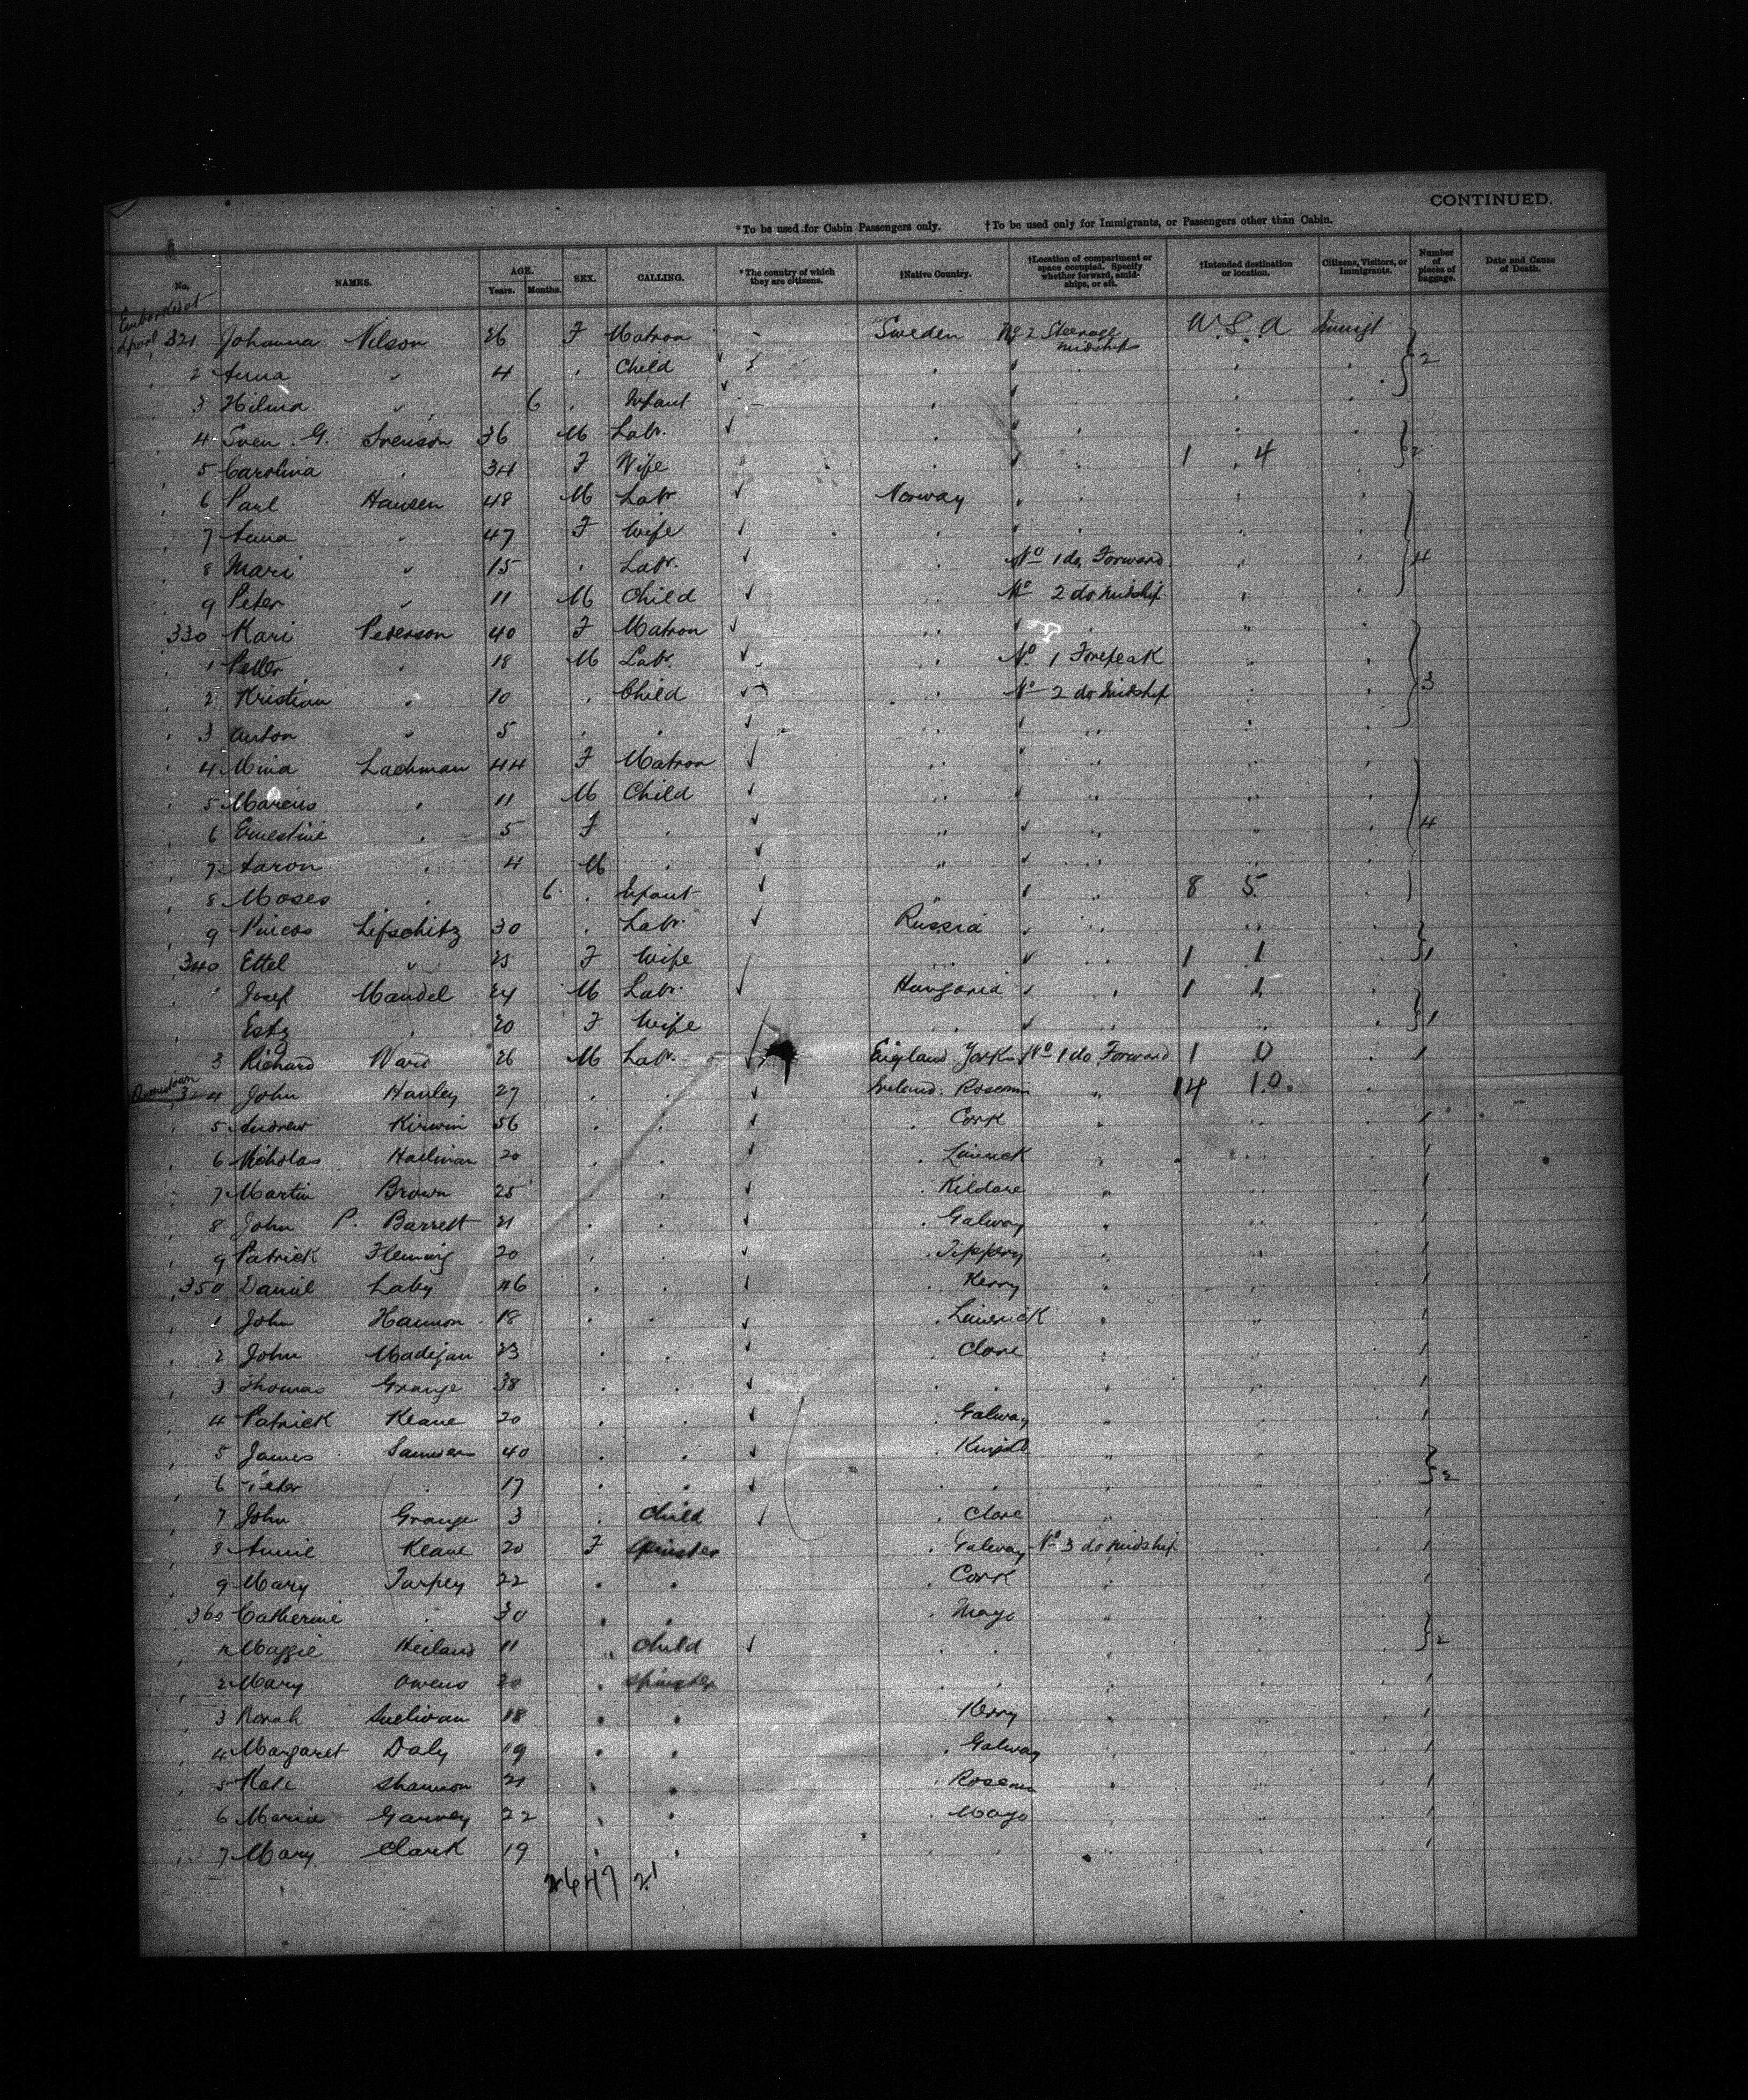 CONTINUED.
*To be used for Cabin Passengers only. †To be used only for Immigrants, or Passengers other than Cabin.
No. NAMES. AGE. Years. Months. SEX. CALLING. *The country of which they are citizens. †Native Country. †Location of compartment or space occupied. Specify whether forward, amidships, or aft. †Intended destination or location. Citizens, Visitors, or Immigrants. Number of pieces of baggage. Date and Cause of Death.
Embarked at
Lpool 321 Johanna Nilson 26 F Matron Sweden No 2 Steerage midship U.S.A Immigt
2 Anna " 4 Child 2
3 Hilma " 6 Infant
4 Sven G. Svenson 36 M Labr. 2
5 Carolina 34 F Wife 1 4
6 Paul Hansen 48 M Labr. Norway
7 Anna " 47 F Wife
8 Mari " 15 Labr. No 1 do Forward 4
9 Peter " 11 M Child No 2 do midship
330 Kari Pederson 40 F Matron
1 Peder 18 M Labr. No 1 Forepeak
2 Kristian " 10 Child No 2 do midship 3
3 Anton " 5
4 Mina Lachman 44 F Matron
5 Marcus 11 M Child
6 Ernestine 5 F 4
7 Aaron 4 M
8 Moses 6 Infant 8 5
9 Pincos Lifschitz 30 Labr. Russia
340 Ettel " F Wife 1 1 1
Josef Mandel 24 M Labr. Hungaria 1 1
Estz 20 F Wife 1
3 Richard Ward 26 M Labr. England York No 1 do Forward 1 0 1
Queenstown 344 John Hanley 27 Ireland. Roscom 14 10.
5 Andrew Kirwin 56 Cork 1
6 Nicholas 20 Limrick 1
7 Martin Brown 25 Kildare 1
8 John P. Barrett 21 Galway 1
9 Patrick Fleming 20 Tippery 1
350 Daniel 46 Kerry 1
1 John Hannon 18 Limerick 1
2 John Madigan 23 Clare 1
3 Thomas Grange 38 1
4 Patrick Keane 20 Galway 1
5 James 40
6 Peter 17 2
7 John Grange 3 Child Clare 1
8 Annie Keane 20 F Spinster Galway No 3 do midship 1
9 Mary Tarpey 22 Cork 1
360 Catherine 30 Mayo
Maggie 11 Child 2
2 Mary Owens 20 Spinster 1
3 Norah Sullivan 18 Kerry 1
4 Margaret Daly 19 Galway 1
5 Kate Shannon 21 Roscom 1
6 Maria Garvey 22 Mayo 1
7 Mary Clark 19 1
2647 21